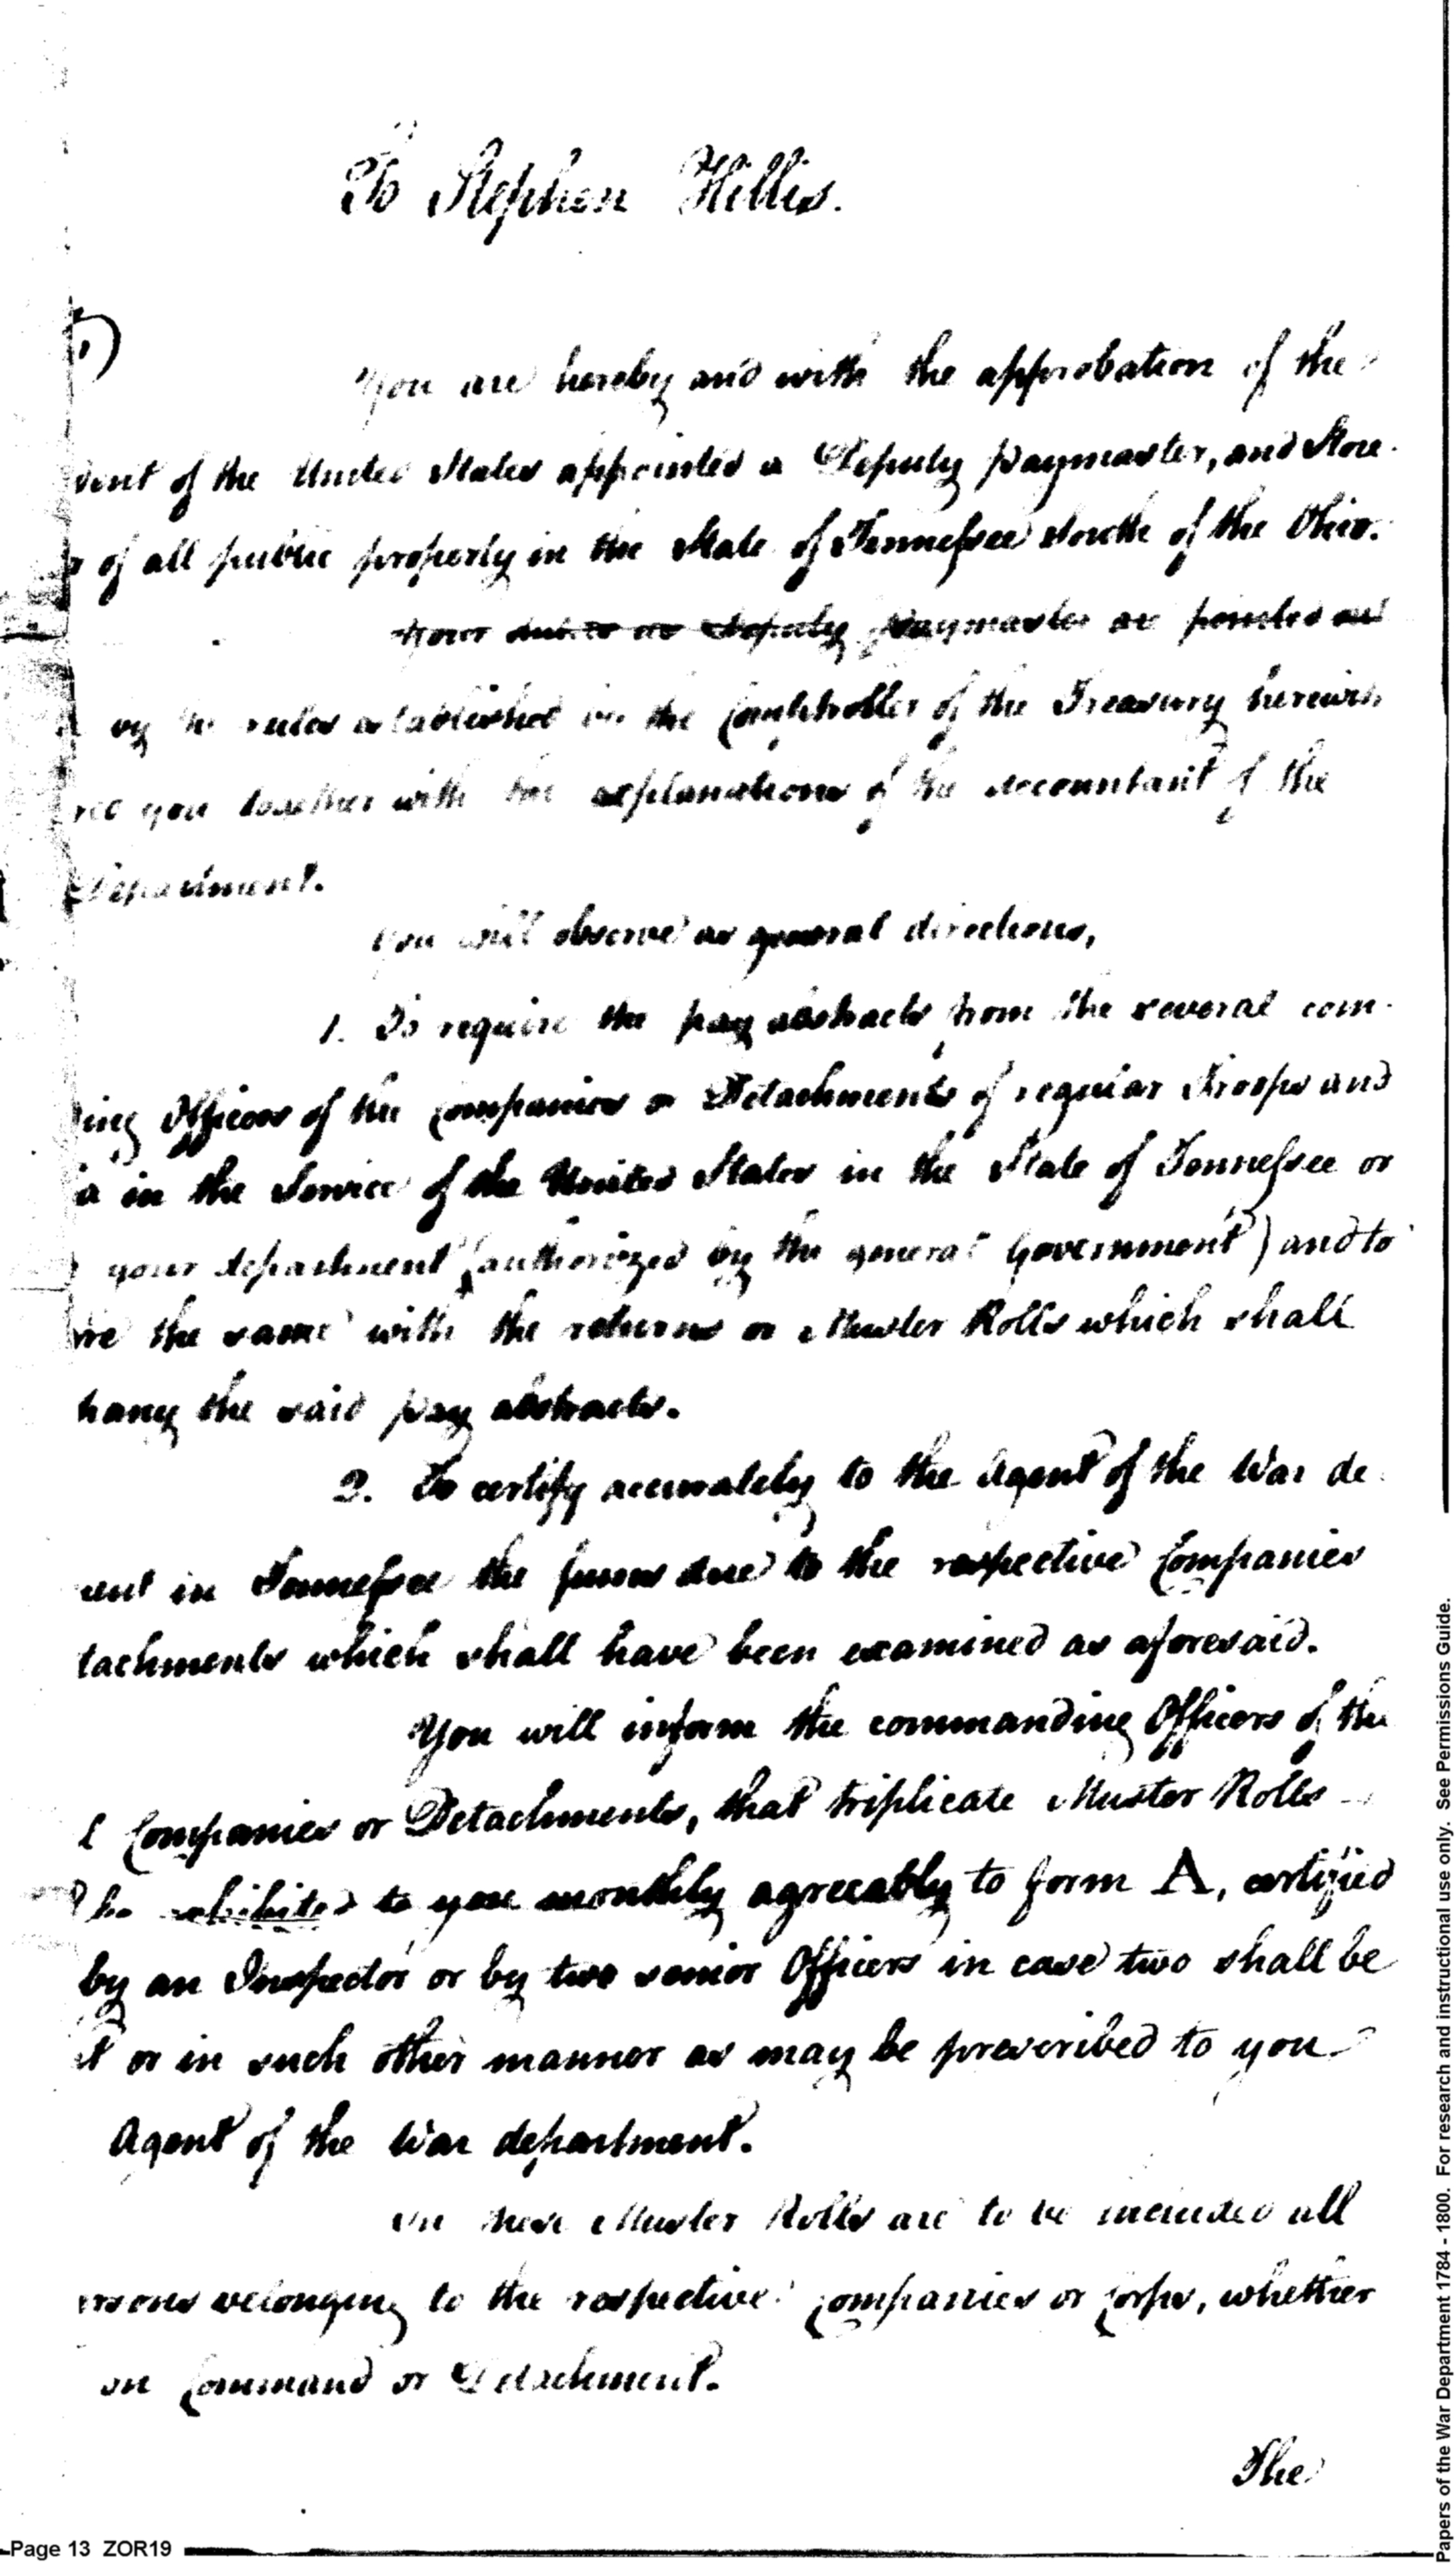 To Stephen Hillis.
You are hereby and with the approbation of the
dent of the United States appointed a Deputy Paymaster, and Store
of all public property in the State of Tennessee South of the Ohio.
Your duties as Deputy Paymaster are pointed out
by the rules established by the Comptroller of the Treasury herewith
you together with the explanations of the Accountant of the
Department.
You will observe as general directions,
1. To require the pay abstracts from the several com-
ding Officers of the Companies or Detachments of regular Troops and
a in the Service of the United States in the State of Tennessee or
your department (authorized by the general Government) and to
are the same with the returns or Muster Rolls which shall
pany the said pay abstracts.
2. To certify accurately to the Agent of the War de
ent in Tennessee the sums due to the respective Companies
tachments which shall have been examined as aforesaid.
You will inform the commanding Officers of the
l Companies or Detachments, that triplicate Muster Rolls
be exhibited to you monthly agreeably to form A, certified
by an Inspector or by two senior Officers in case two shall be
t or in such other manner as may be prescribed to you
Agent of the War department.
In these Muster Rolls are to be included all
ersons belonging to the respective Companies or Corps, whether
on Command or Detachment.
The
Page 13 ZOR19
Papers of the War Department 1784 - 1800. For research and instructional use only. See Permissions Guide.